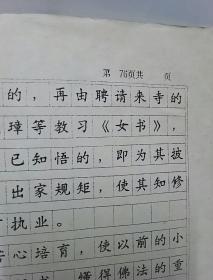 第 76页共 页
的，再由聘请来寺的
璋等教习《女书》，
已知悟的，即为其披
出家规矩，使其知修
执业。
心培育，使以前的小
懂得佛法的重